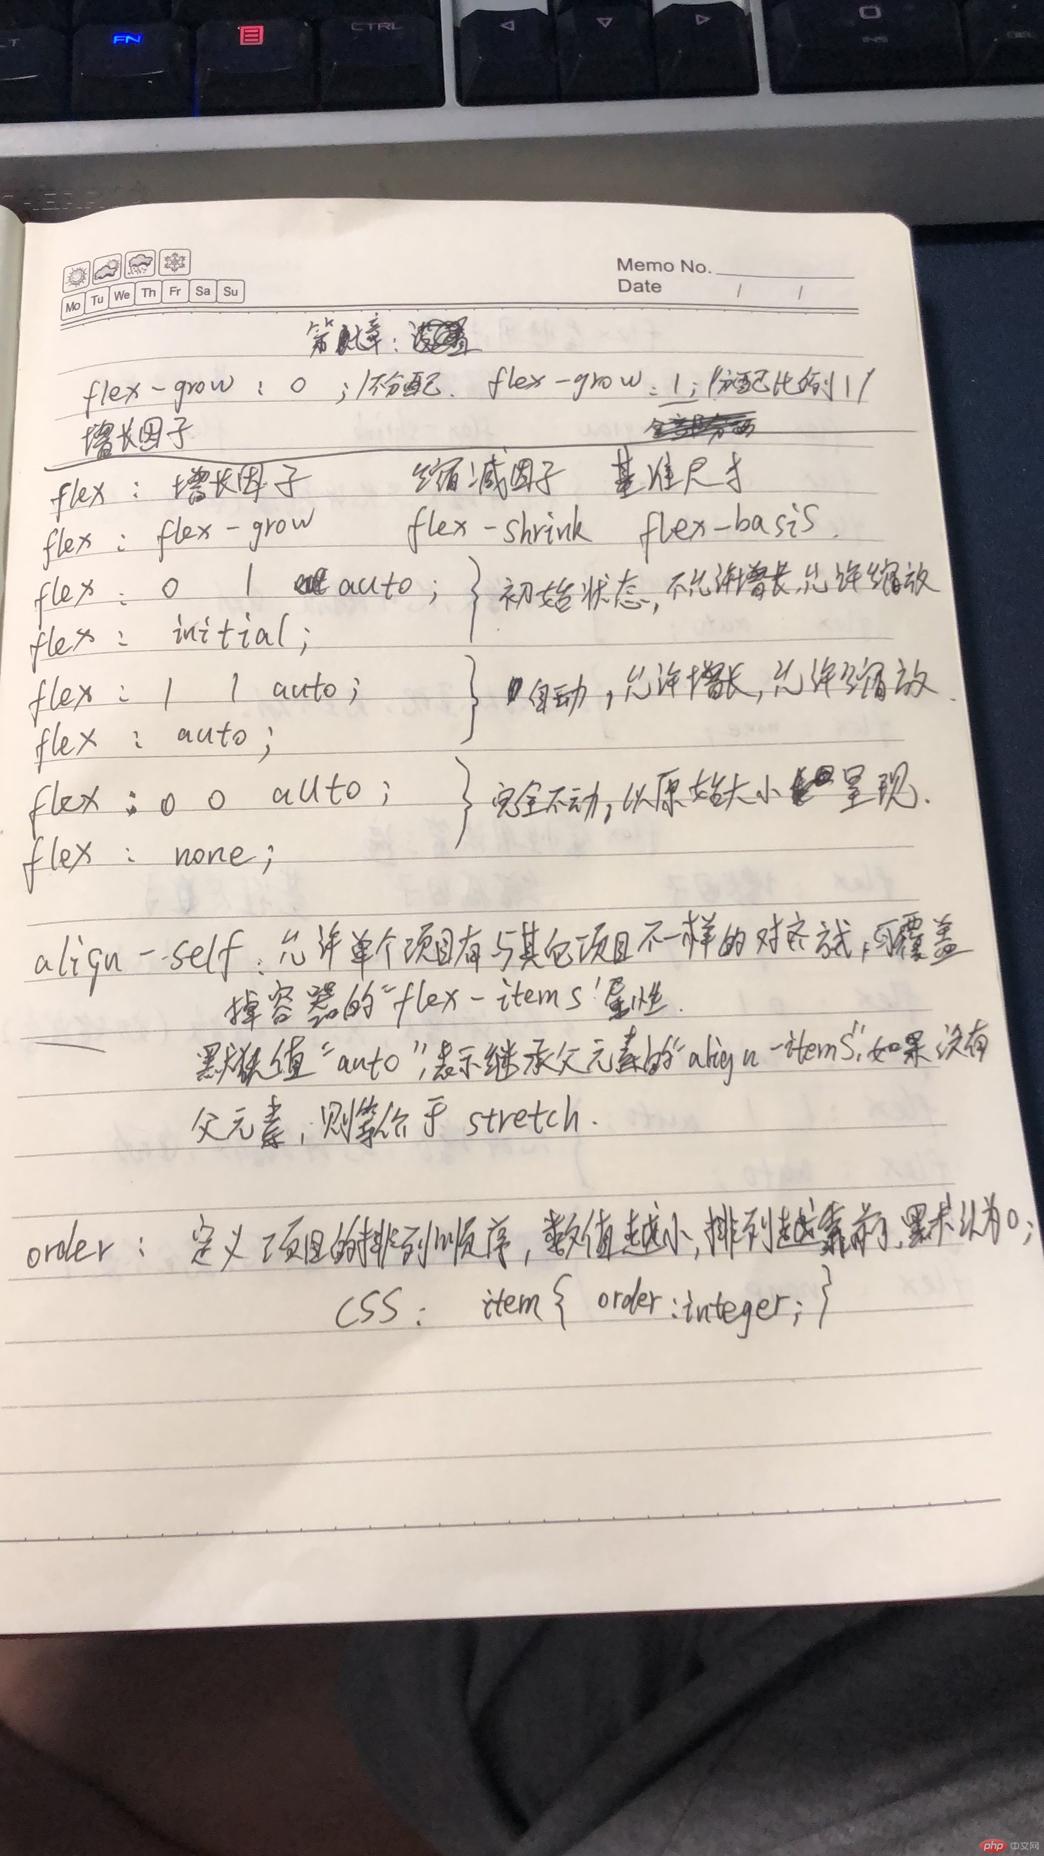 FN
CTRL
INS
Memo No.
Mo Tu We Th Fr Sa Su
Date / /
flex-grow : 0 ; /不分配. flex-grow : 1; /分配比例1/
增长因子
flex : 增长因子 缩减因子 基准尺寸
flex : flex-grow flex-shrink flex-basis.
flex : 0 1 auto ; 初始状态,不允许增长,允许缩放
flex : initial;
flex : 1 1 auto; 自动,允许增长,允许缩放.
flex : auto;
flex : 0 0 auto ; 完全不动,以原始大小呈现.
flex : none;
align-self : 允许单个项目有与其他项目不一样的对齐方式,可覆盖
掉容器的"flex-items"属性.
默认值"auto",表示继承父元素的"align-items",如果没有
父元素,则等价于 stretch.
order : 定义项目的排列顺序,数值越小,排列越靠前,默认为0;
CSS : item { order:integer; }
php 中文网